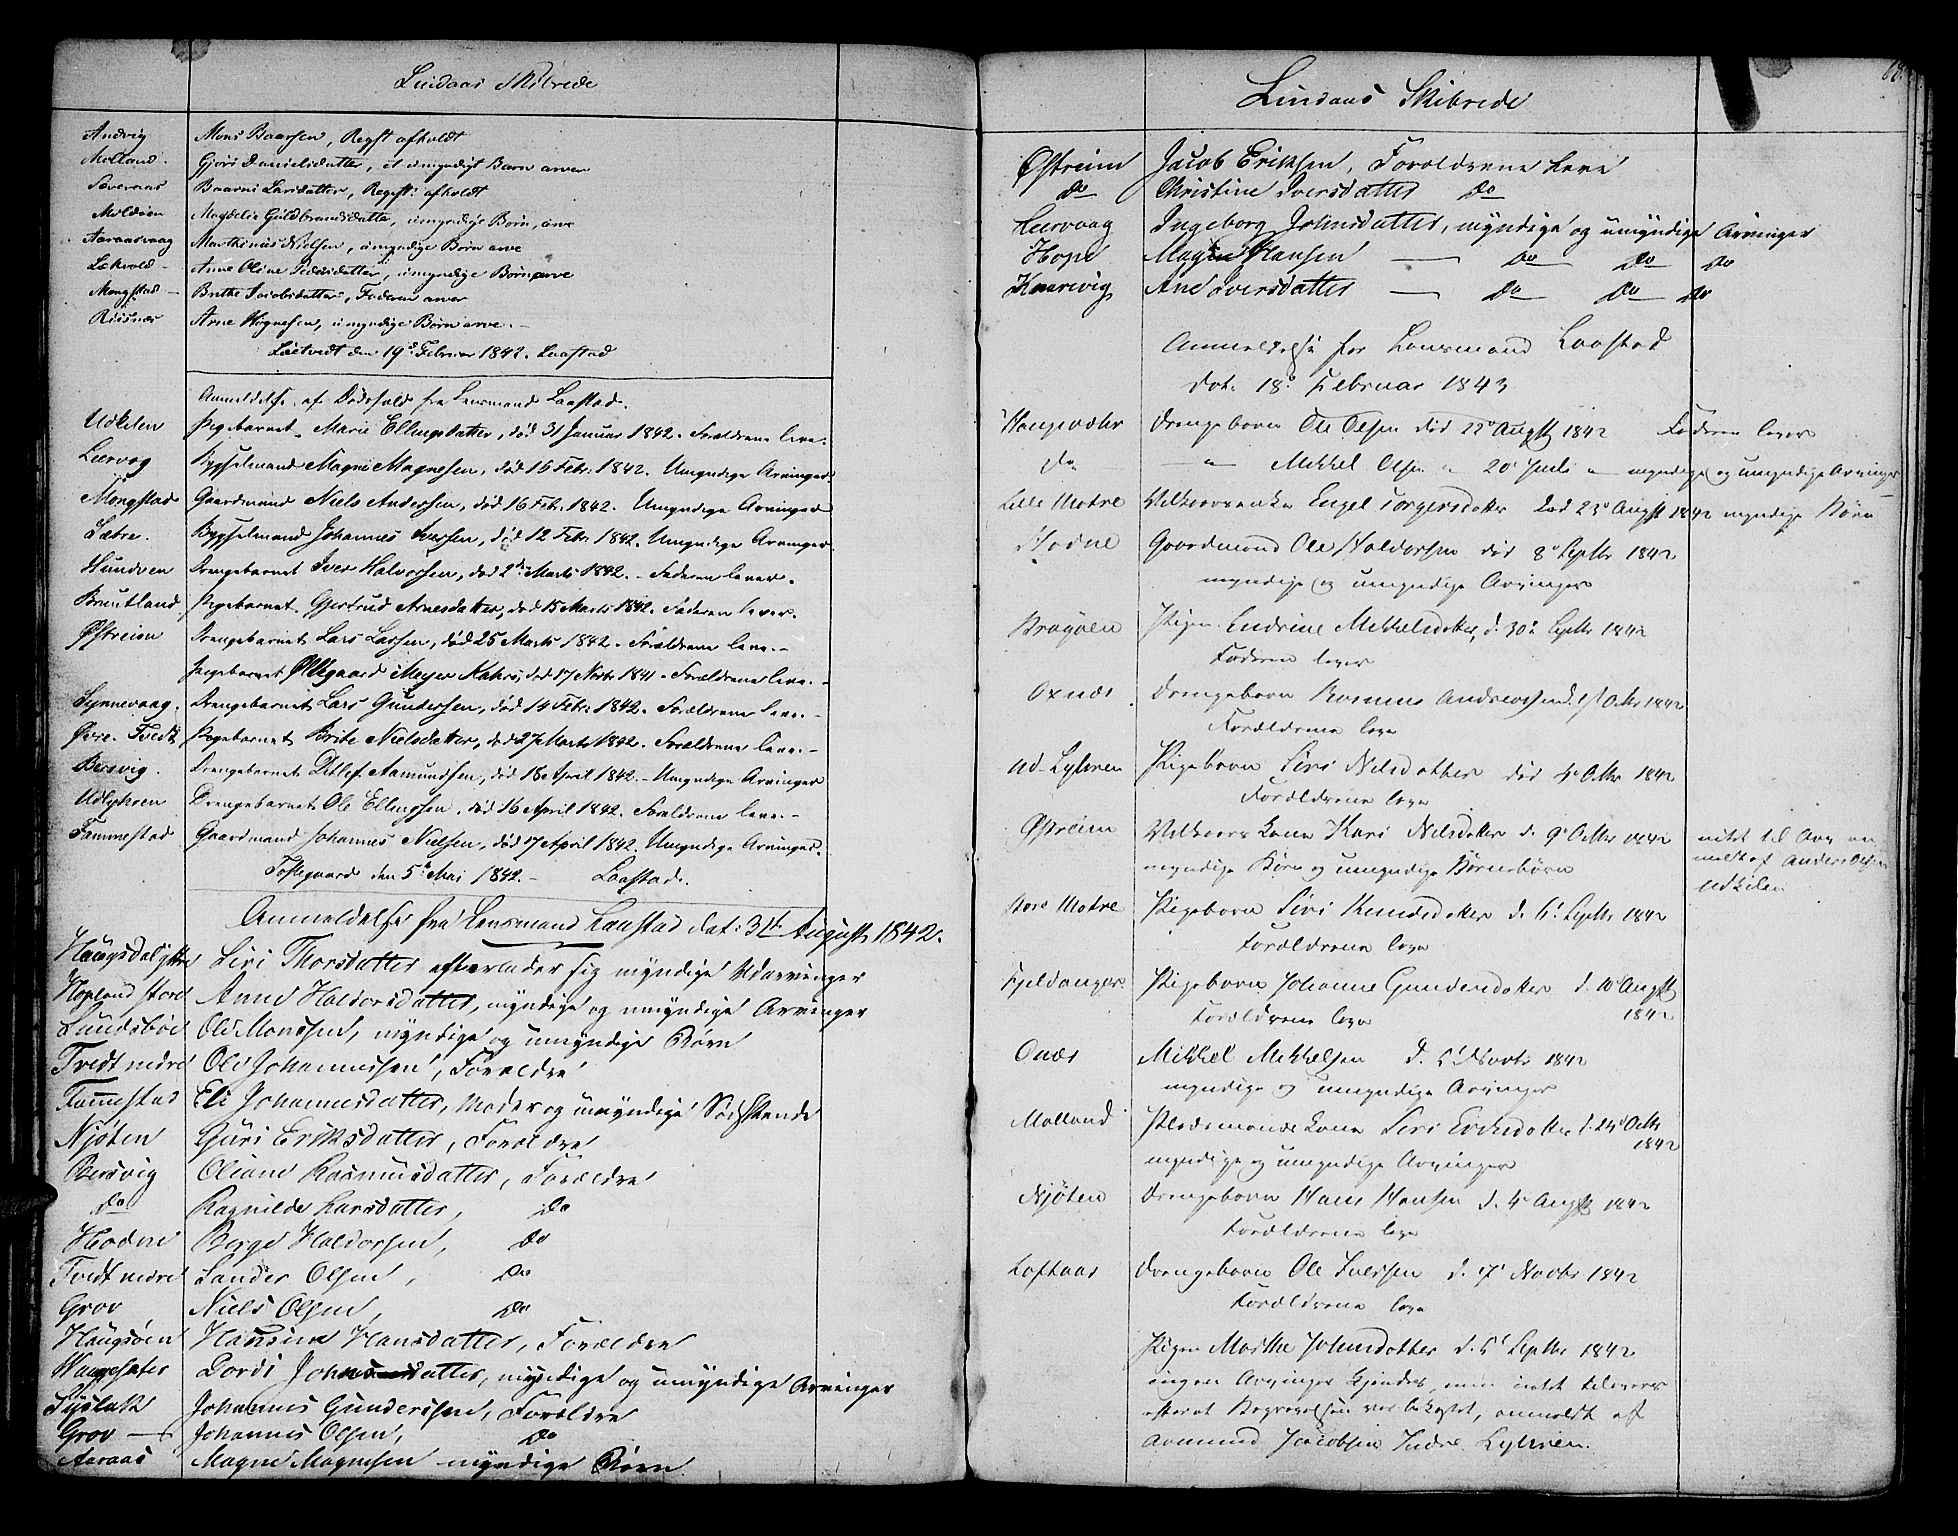 Lindaas Skibrede
Andvig Mons Baarsen, Regst afholdt
Molland. Gjøri Danielsdatter, et umyndigt Barn arver
Severaas Baarni Larsdatter, Regst: afholdt
Moldøen Magdelie Guldbrandsdatter, umyndige Børn, arve
Aaraasvaag Marthinus Nielsen, umyndige Børn arve
Anne Oline Pedersdatter, umyndige Børn arve
Mongstad Brithe Jacobsdatter, Faderen arver
Riisnæs Arne Hognesen, umyndige Børn arve.
den 19de Februar 1842. Laastad
Anmeldelse af Dødsfald fra Lensmand Laastad.
Udkilen Pigebarnet Marie Ellingsdatter, død 31 Januar 1842. Forældrene leve.
Leervog Bygselmand Magne Magnesen, død 16 Febr: 1842. Umyndige Arvinger.
Mongstad Gaardmand Niels Anderssen, død 16 Feb: 1842. Umyndige Arvinger
Sætre. Bygselmand Johannes Iversen, død 12 Feb: 1842. Umyndige Arvinger.
Hundven Drengebarnet Iver Halvorssen, død 2de Marts 1842. Faderen lever.
Bruntland Pigebarnet Gjertrud Arnesdatter, død 15 Marts 1842. Faderen lever.
Østreim Drengebarnet Lars Larsen, død 25 Marts 1842. Forældrene leve.
Pigebarnet Øllegaard Meyer Kahrs, død 17 Novbr 1841. Forældrene leve.
Synnevaag. Drengebarnet Lars Gunderssen, død 14 Feb: 1842. Forældrene leve.
Øvre Tvedt, Pigebarnet Brite Nielsdatter, død 27 Marts 1842. Forældrene leve.
Bersvig. Drengebarnet Ditlef Aamundsen, død 18 April 1842. Umyndige Arvinger
Udlyhren Drengebarnet Ole Ellingsen, død 16 April 1842. Forældrene leve.
Fammestad Gaardmand Johannes Nielsen, død 17 April 1842. Umyndige Arvinger.
den 5te Mai 1842. Laastad.
Anmeldelse fra Lensmand Laastad dat: 31te August 1842.
Haugsdal yttre Siri Thorsdatter efterlader sig myndige Udarvinger
Hopland store Anne Haldorsdatter, myndige og umyndige Arvinger
Lundsbøe Ole Monssen, myndige og umyndige Børn
Tvedt nedre Ole Johannessen, Forældre
Fammestad Eli Johannesdatter, Moder og umyndige Sødskende
Njøten Guri Eriksdatter, Forældre
Bersvig Oliane Rasmusdatter, Forældre
do Ragnilde Larsdatter, Do
Hodne Berge Haldorsen, Do
Tvedt nedre Sander Olsen, Do
Grov Niels Olsen, Do
Haugsøen Hansine Hansdatter, Forældre
Vaagesæter Gordi Johnsdatter, myndige og umyndige Arvinger
Syslak Johannes Gunderssen, Forældre
Grov Johannes Olsen, Do
Aaraas Magne Magnesen myndige Børn
Lindaas Skibrede
Østreim Jacob Eriksen, Forældrene leve
Do Christine Iversdatter Do
Leirvaag Ingeborg Johnsdatter, myndige og umyndige Arvinger
Hope Magne Hansen Do Do Do
Knarvig Ane Iversdatter Do Do Do
Anmeldelse fra Lensmand Laastad
dat. 18de Februar 1843
Hougsvær Drengebarn Ole Olsen død 22de Augst 1842 Faderen lever
do " Mikkel Olsen " 20de Juli " myndige og umyndige Arvinger
Lille Matre Vilkaarsenke Engel Torgersdatter død 23de Augst 1842 myndige Børn
Hodne Gaardmand Ole Haldorsen død 8de Septbr 1842
myndige og umyndige Arvinger
Pigen Endrine Mikkelsdatter, d. 30te Septbr 1842
Faderen lever
Oxnæs Drengebarn Rasmus Andreassen d. 1st Octbr 1842
Forældrene leve
Ud-Lyhren Pigebarn Siri Nilsdatter død 4de Octbr 1842
Forældrene leve
Østreim Vilkaarskone Kari Nilsdatter d. 9de Octbr 1842 intet til Arv an
myndige Børn og umyndige Børnebørn meldt af Anders Olsen
Udkilen
Store Matre Pigebarn Siri Knudsdatter d. 6te Septbr 1842
Forældrene leve
Fjeldanger Pigebarn Johanne Gundersdatter d. 10de Augst
Forældrene leve 1842
Oxnæs Mikkel Mikkelsen d. 5te Novbr 1842
myndige og umyndige Arvinger
Molland Pladsmands kone Siri Eriksdatter d. 24de Octbr
1842
myndige og umyndige Arvinger
Njøten Drengebarn Hans Hansen d. 4de Augst 1842
Forældrene leve
Loftaas Drengebarn Ole d. 7de Novbr 1842
Forældrene leve
Pigen Marthe Johnsdatter d. 5te Septbr 1842
ingen Arvinger kjendes, men intet tilovers
efterat Begravelsen var bekostet, anmeldt af
Aamund Jacobsen Indre Lyhren.